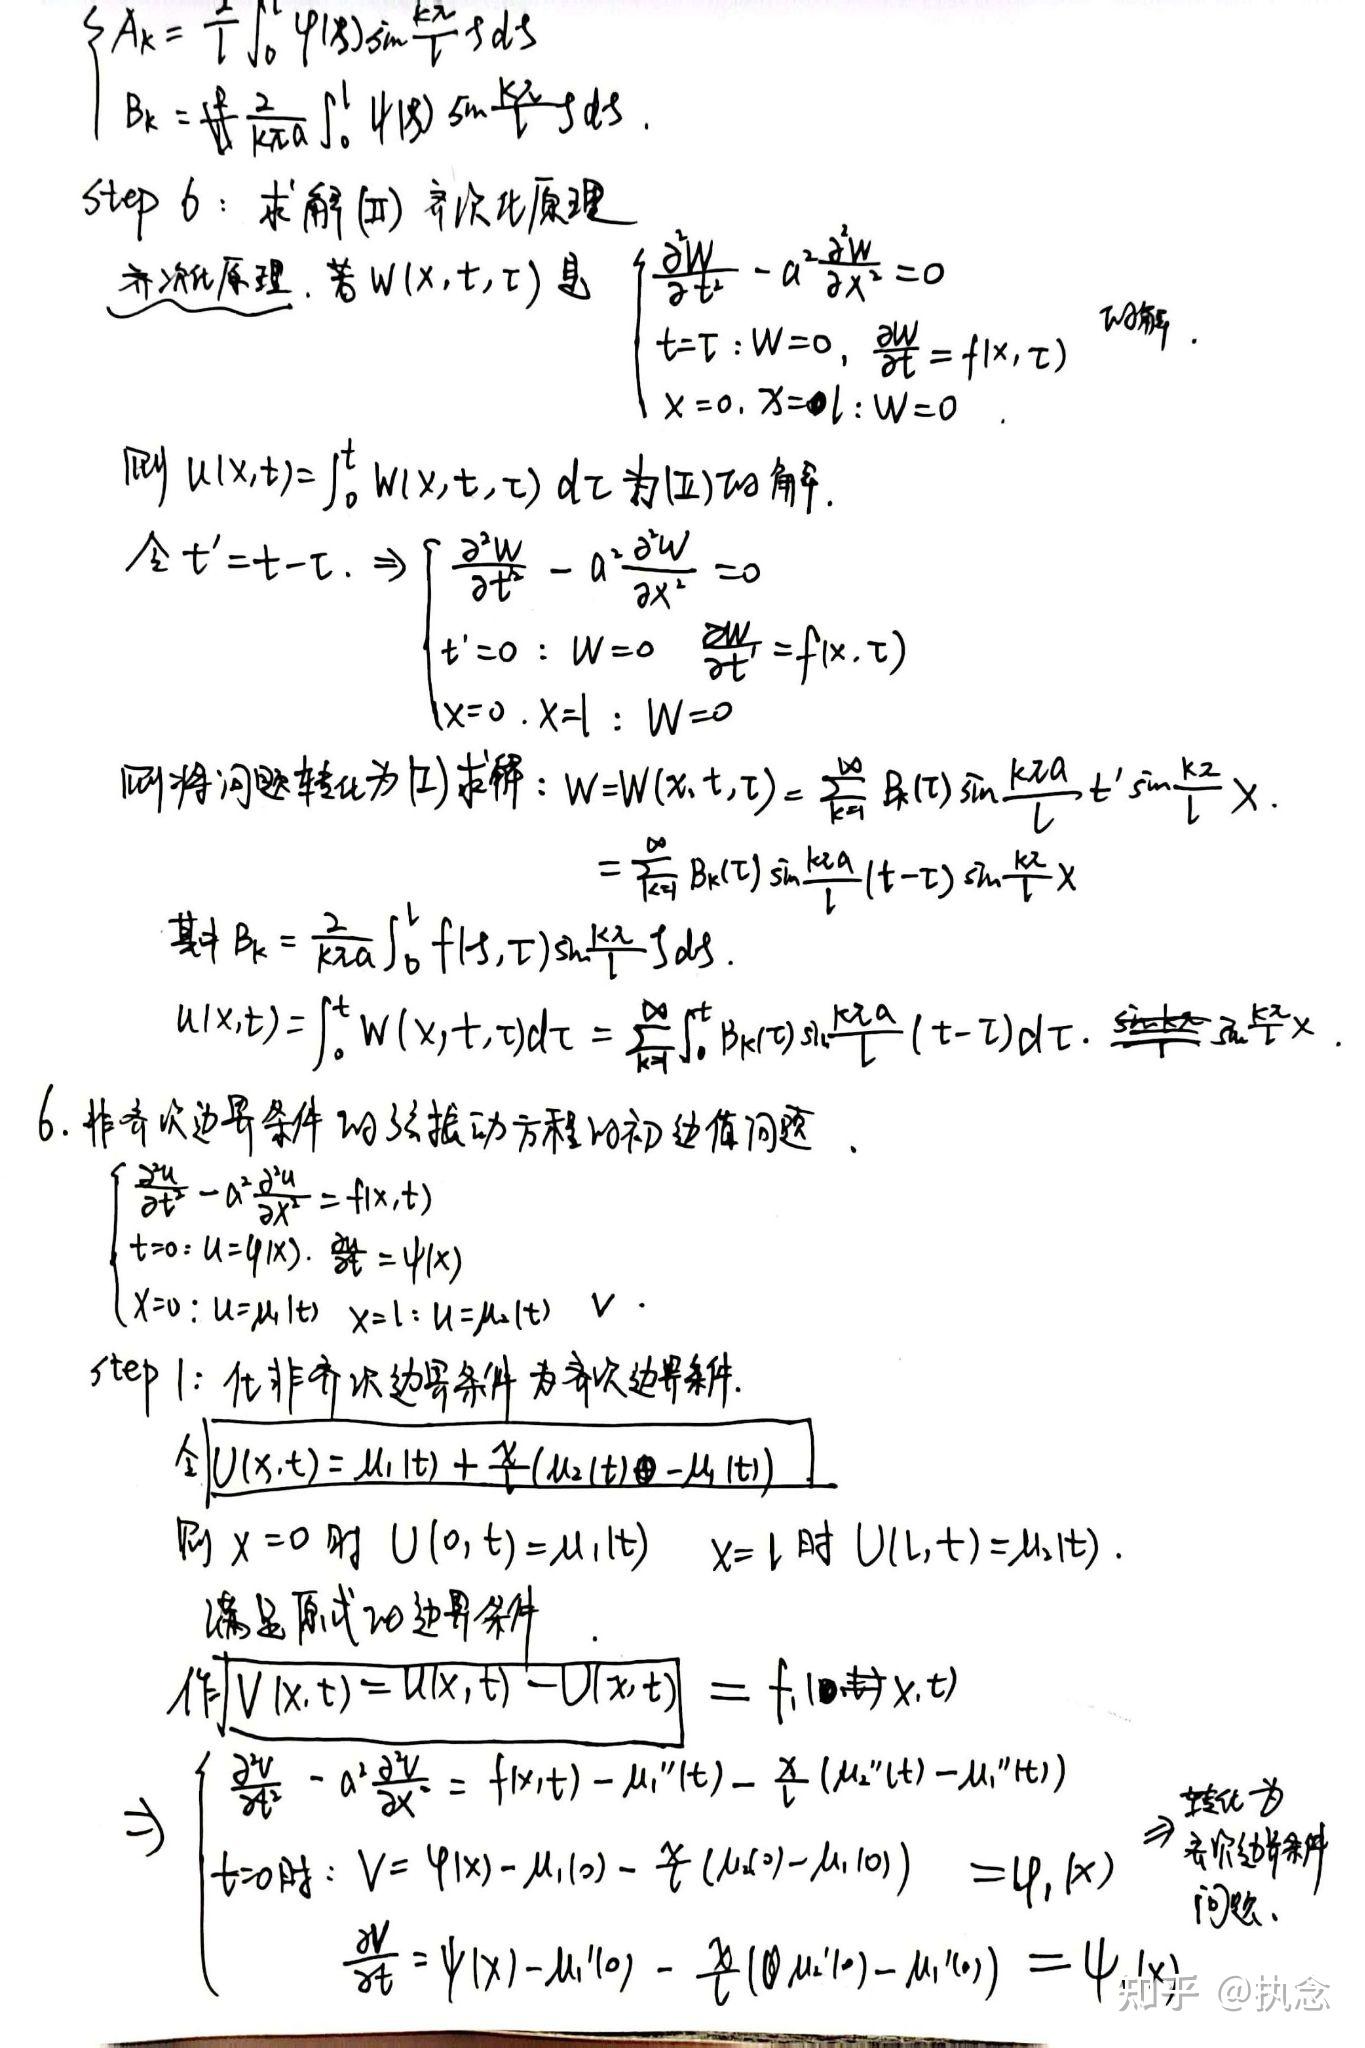 { A_k = 2/l ∫_0^l φ(ξ) sin kπ/l ξ dξ
B_k = 2/(kπa) ∫_0^l ψ(ξ) sin kπ/l ξ dξ.
Step 6: 求解(II) 齐次化原理
齐次化原理. 若 W(x,t,τ) 是 { ∂²W/∂t² - a² ∂²W/∂x² = 0
t=τ: W=0, ∂W/∂t = f(x,τ) 的解.
x=0. x=l: W=0.
则 u(x,t) = ∫_0^t W(x,t,τ) dτ 为(II)的解.
令 t'=t-τ. ⇒ { ∂²W/∂t'² - a² ∂²W/∂x² = 0
t'=0: W=0 ∂W/∂t' = f(x.τ)
x=0. x=l: W=0
则将问题转化为(I)求解: W=W(x.t,τ) = ∑_{k=1}^∞ B_k(τ) sin kπa/l t' sin kπ/l x.
= ∑_{k=1}^∞ B_k(τ) sin kπa/l (t-τ) sin kπ/l x
其中 B_k = 2/(kπa) ∫_0^l f(ξ,τ) sin kπ/l ξ dξ.
u(x,t) = ∫_0^t W(x,t,τ)dτ = ∑_{k=1}^∞ ∫_0^t B_k(τ) sin kπa/l (t-τ)dτ. sin kπ/l x.
6. 非齐次边界条件的弦振动方程的初边值问题.
{ ∂²u/∂t² - a² ∂²u/∂x² = f(x,t)
t=0: u=φ(x). ∂u/∂t = ψ(x)
x=0: u=μ₁(t) x=l: u=μ₂(t) V.
Step 1: 化非齐次边界条件为齐次边界条件.
令 U(x.t) = μ₁(t) + x/l (μ₂(t) - μ₁(t))
则 x=0 时 U(0,t)=μ₁(t) x=l 时 U(l,t)=μ₂(t).
满足原式的边界条件.
作 V(x.t) = u(x,t) - U(x,t) = f₁(x.t)
⇒ { ∂²V/∂t² - a² ∂²V/∂x² = f(x,t) - μ₁''(t) - x/l (μ₂''(t) - μ₁''(t))
t=0时: V = φ(x) - μ₁(0) - x/l (μ₂(0) - μ₁(0)) = φ₁(x)
⇒ 转化为
齐次边界条件
问题.
∂V/∂t = ψ(x) - μ₁'(0) - x/l (μ₂'(0) - μ₁'(0)) = ψ₁(x)
知乎 @执念